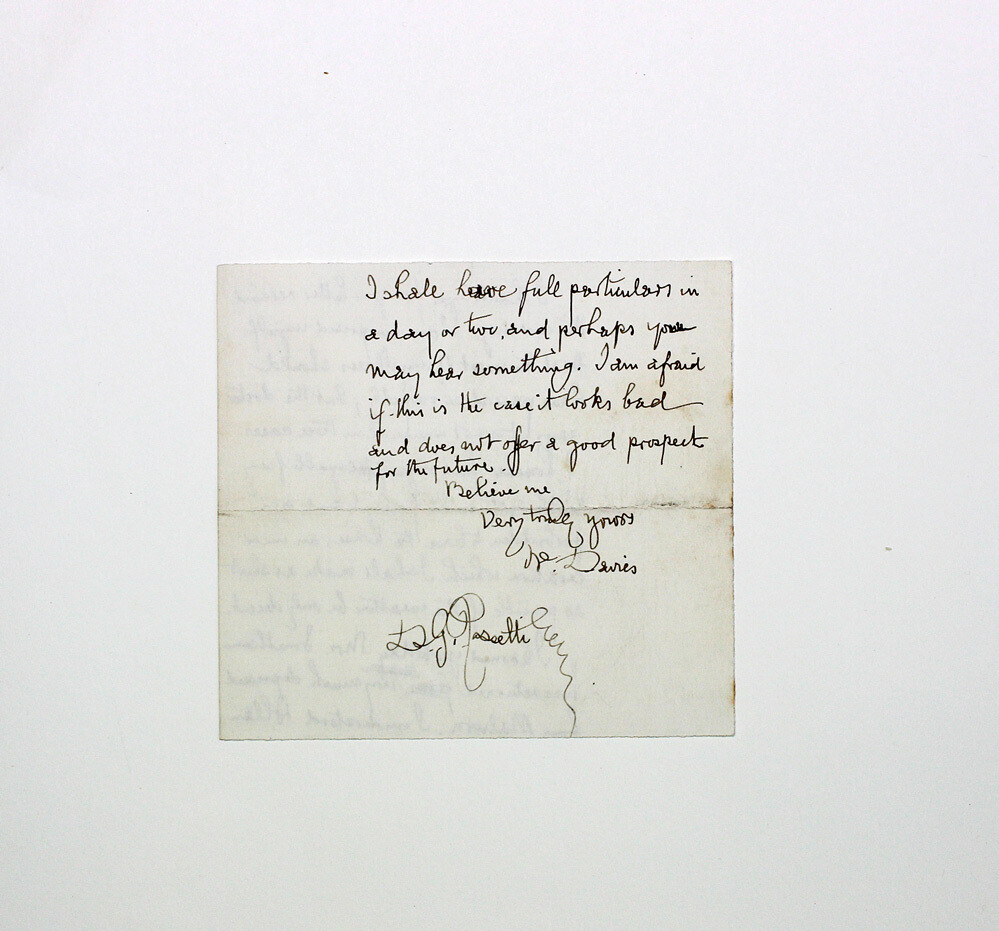 I shall have full particulars in
a day or two, and perhaps you
may hear something. I am afraid
if this is the case it looks bad
and does not offer a good prospect
for the future.
Believe me
Very truly yours
W. Davies
D. G. Rossetti